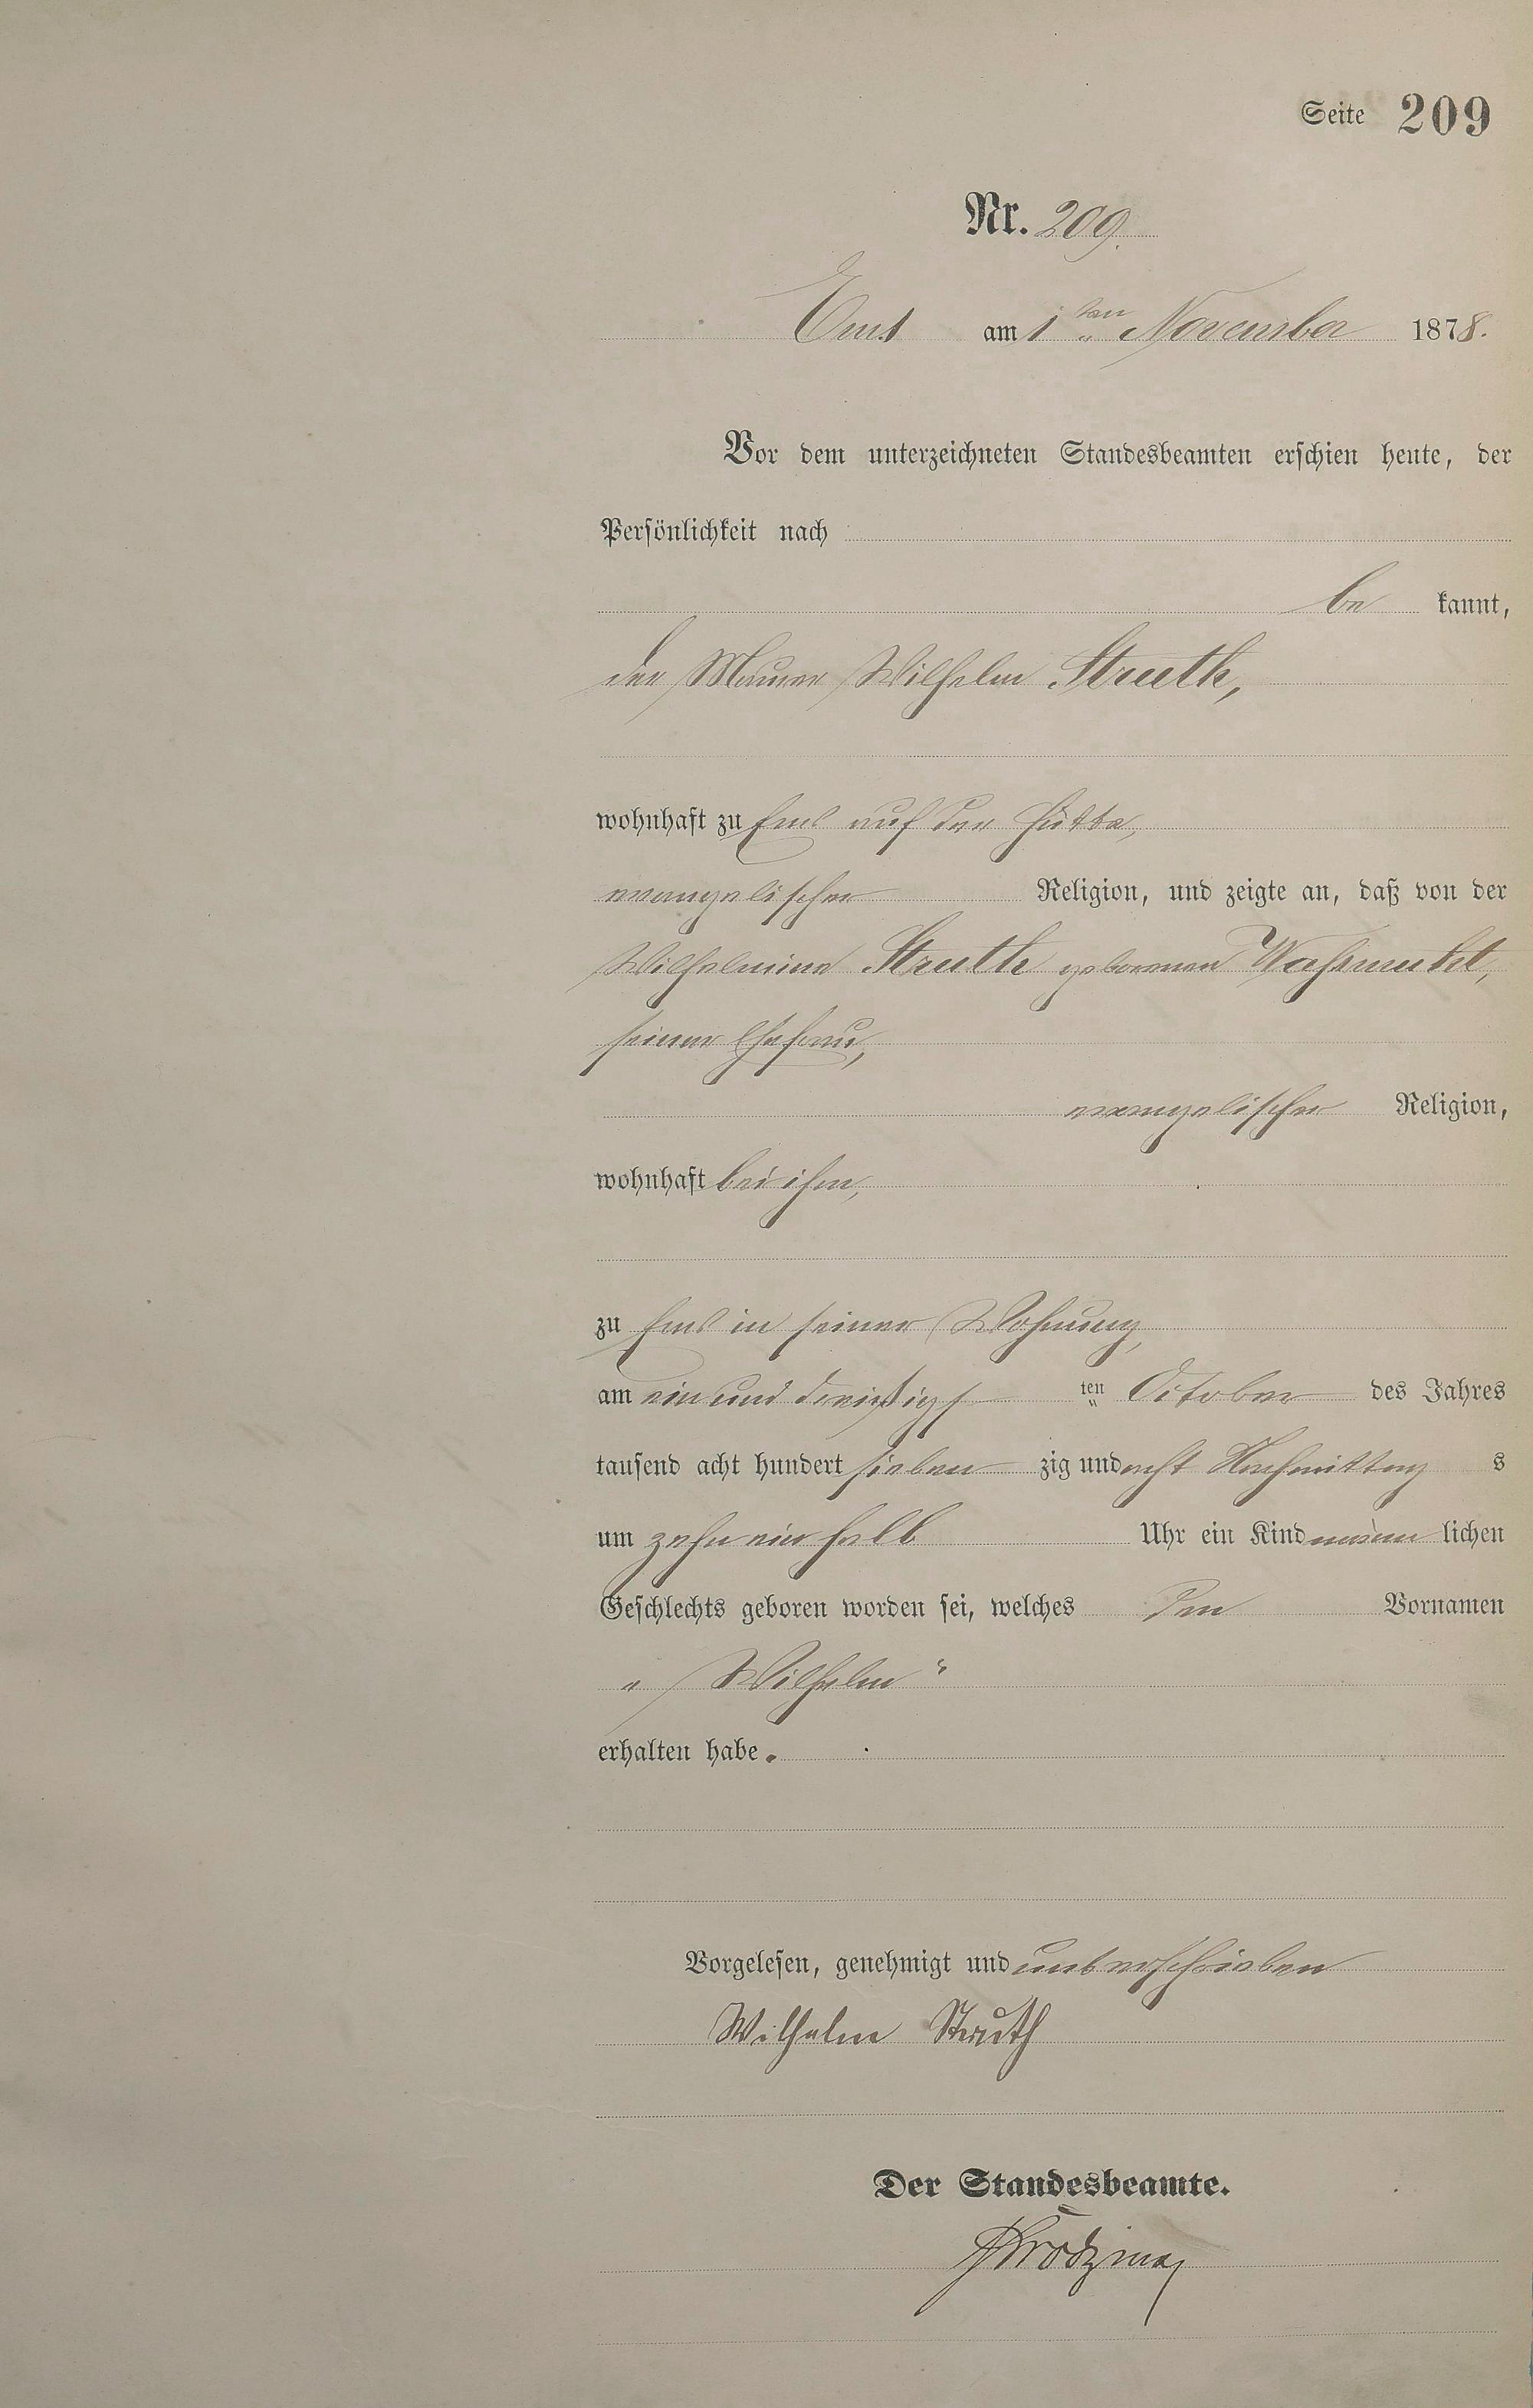 Seite 209
Nr. 209.
Ems am 1ten November 1878.
Vor dem unterzeichneten Standesbeamten erschien heute, der
Persönlichkeit nach
be kannt,
der Maurer Wilhelm Struth,
wohnhaft zu Ems auf der Hütte,
evangelischer Religion, und zeigte an, daß von der
Wilhelmine Struth geborenen
seiner Ehefrau,
evangelischer Religion,
wohnhaft bei ihm,
zu Ems in seiner Wohnung,
am ein und dreißigsten October des Jahres
tausend acht hundert sieben zig und acht Nachmittag s
um zehn ein halb Uhr ein Kind männ lichen
Geschlechts geboren worden sei, welches den Vornamen
„Wilhelm“
erhalten habe.
Vorgelesen, genehmigt und unterschrieben
Wilhelm Struth
Der Standesbeamte.